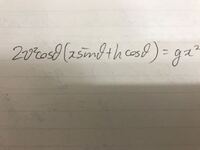 2v²cosθ(xsinθ+hcosθ)=gx²